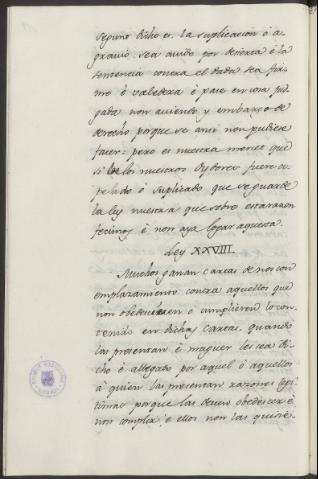 segund dicho es, la suplicacion ó a-
gravio, sea avido por desierta é la
sentencia contra el dada sea fir-
me é valedera é pase en cosa juz-
gada non aviendo y embargo de
derecho porque se ansi non pudiese
facer: pero es nuestra merced que
si de los nuestros Oydores fuere a-
pelado ó suplicado que se guarde
la ley nuestra que sobre esta razon
fecimos é non aya logar aquesta.
Ley XXVIII.
Muchos ganan cartas de nos con
emplazamiento contra aquellos que
non obedecieren é cumplieren lo con-
tenido en dichas cartas, quando
las presentan é maguer les sea di-
cho é allegado por aquel ó aquellos
á quien las presentan razones legi-
timas porque las deven obedescer é
non complir é ellos non las quisie-